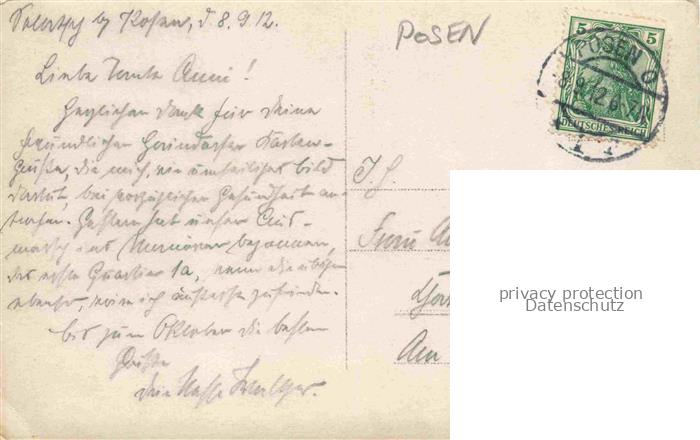 b/ Posen, d. 8.9.12.
Liebe Tante Anni!
Herzlichen Dank für Deine
freundlichen Karten-
Grüße, die mich, wie umseitiges Bild
bei vorzüglicher Gesundheit an-
trafen. Gestern hat unser Aus-
marsch ins Manöver begonnen,
das erste Quartier 1a, wenn die übrigen
ebenso, wäre ich äußerst zufrieden.
Bis zum Oktober die besten
Grüße
Dein Neffe
POSEN
5 5
POSEN O
8.9.12.6-7N
DEUTSCHES REICH
Frau
Am
privacy protection
Datenschutz